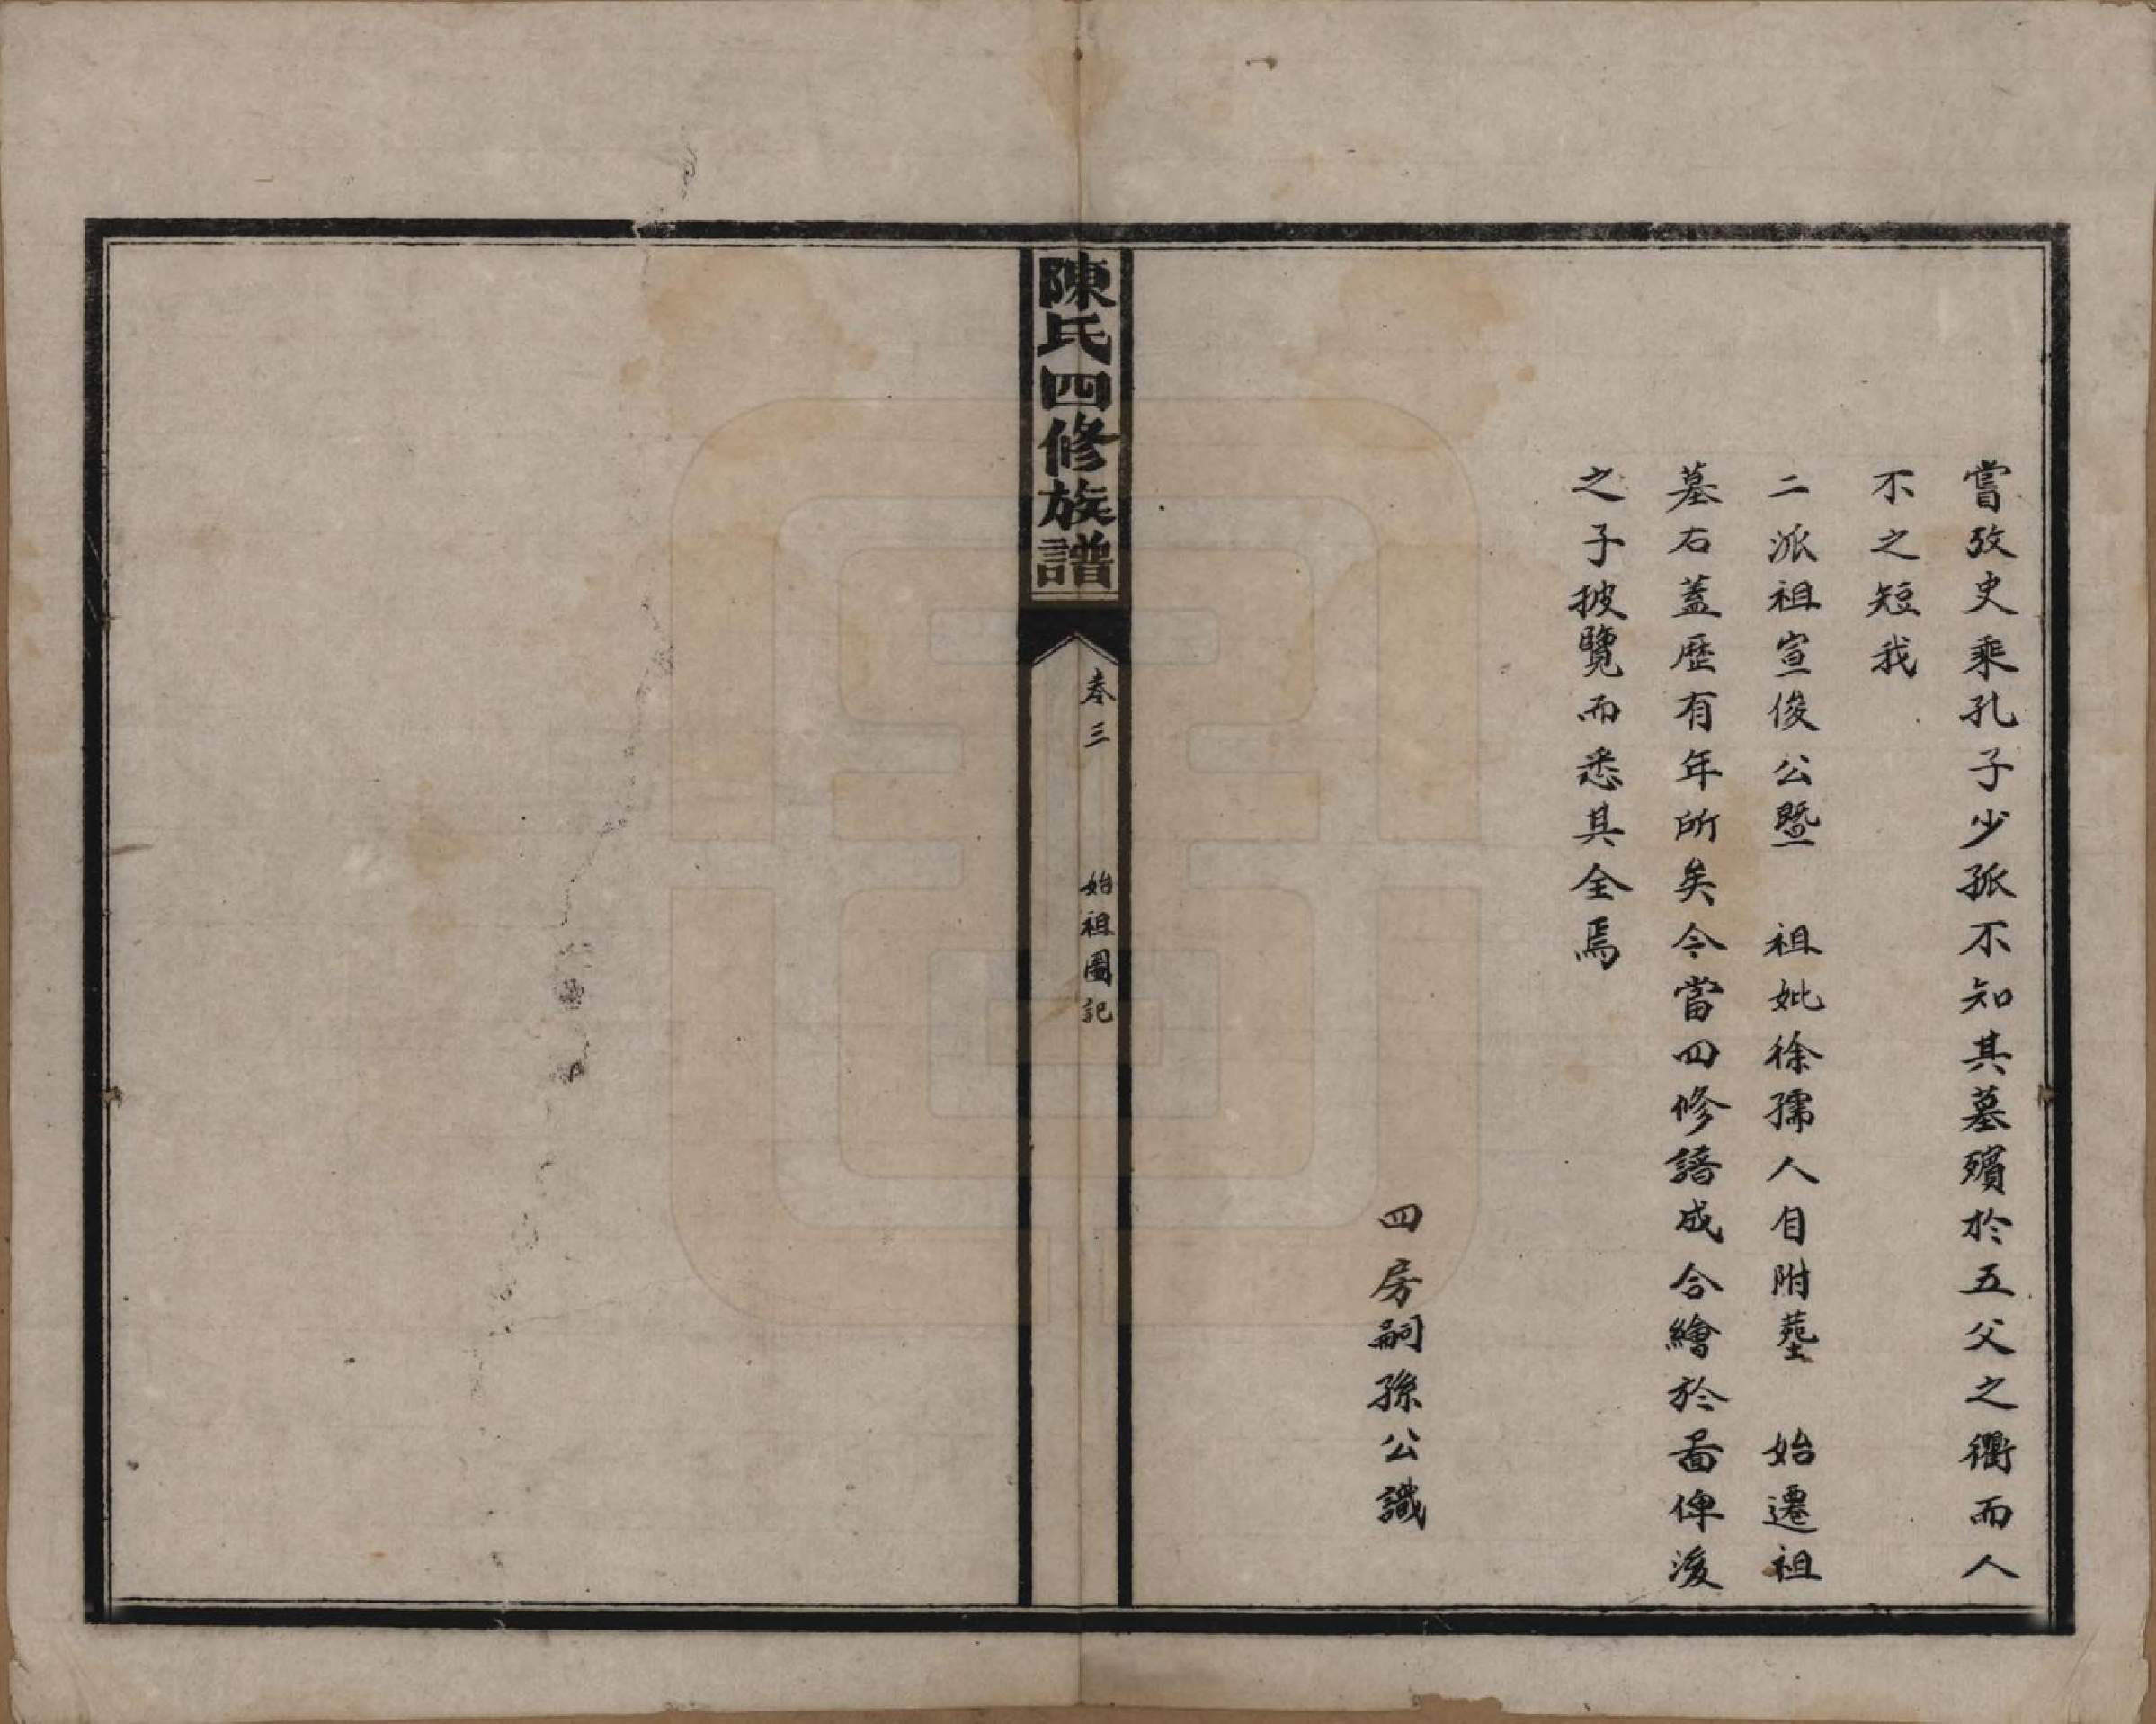 嘗攷史乘孔子少孤不知其墓殯於五父之衢而人
不之短我
二派祖宣俊公暨　祖妣徐孺人自附塟　始遷祖
墓右蓋歷有年所矣今當四修譜成合繪於啚俾後
之子披覽而悉其全焉
四房嗣孫公識
陳氏四修族譜
卷三　始祖圖記